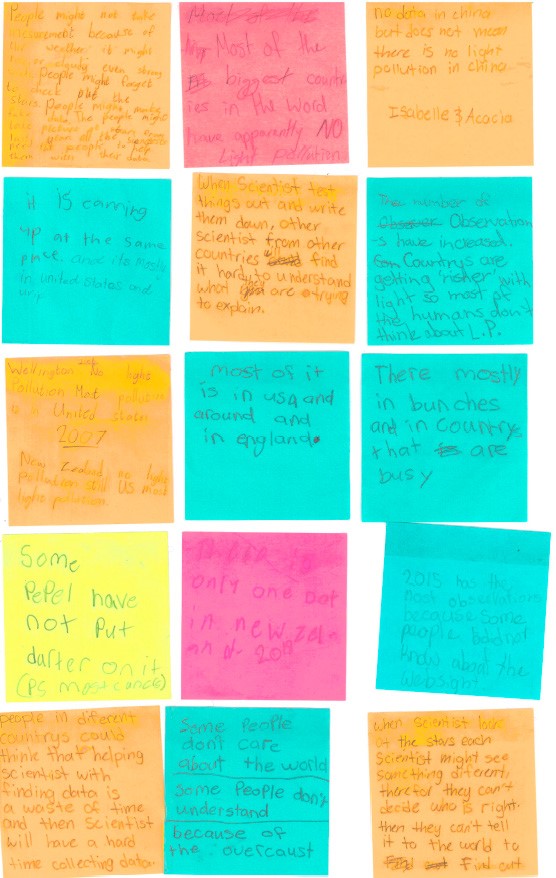 People might not take
measurement because of
the weather it might
even strong
People might forget
to check put the
stars. People might make
data The people might
picture at
you all the
people to help
them with their data
Most of the
biggest countr
ies in the Word
have apparently NO
Light pollution
no data in china
but does not mean
there is no light
pollution in china.
Isabelle & Acacia
it is carring
up at the same
place. and its mostly
in united states and
When Scientist test
things out and write
them down, other
scientist from other
countries find
it hard to understand
what are trying
to explain.
The number of
Observation
-s have increased.
Countrys are
getting 'risher' with
light so most of
the humans don't
think about L.P.
Wellington no light
Pollution Most pollution
is in United states
2007
New Zealand no light
Pollution still US most
light pollution.
most of it
is in USA and
around and
in england.
There mostly
in bunches
and in countrys
that are
busy
Some
PePel have
not Put
darter on it
(PS most
There is
only one dot
in new zel-
an d.
2015 has the
most observations
because some
people
know about the
websight
people in diferent
countrys could
think that helping
scientist with
finding data is
a waste of time
and then Scientist
will have a hard
time collecting data.
Some People
don't care
about the world
some People don't
understand
because of
the overcaust
when Scientist look
at the stars each
Scientist might see
something different,
therefor they can't
decide who is right.
then they can't tell
it to the world to
find out